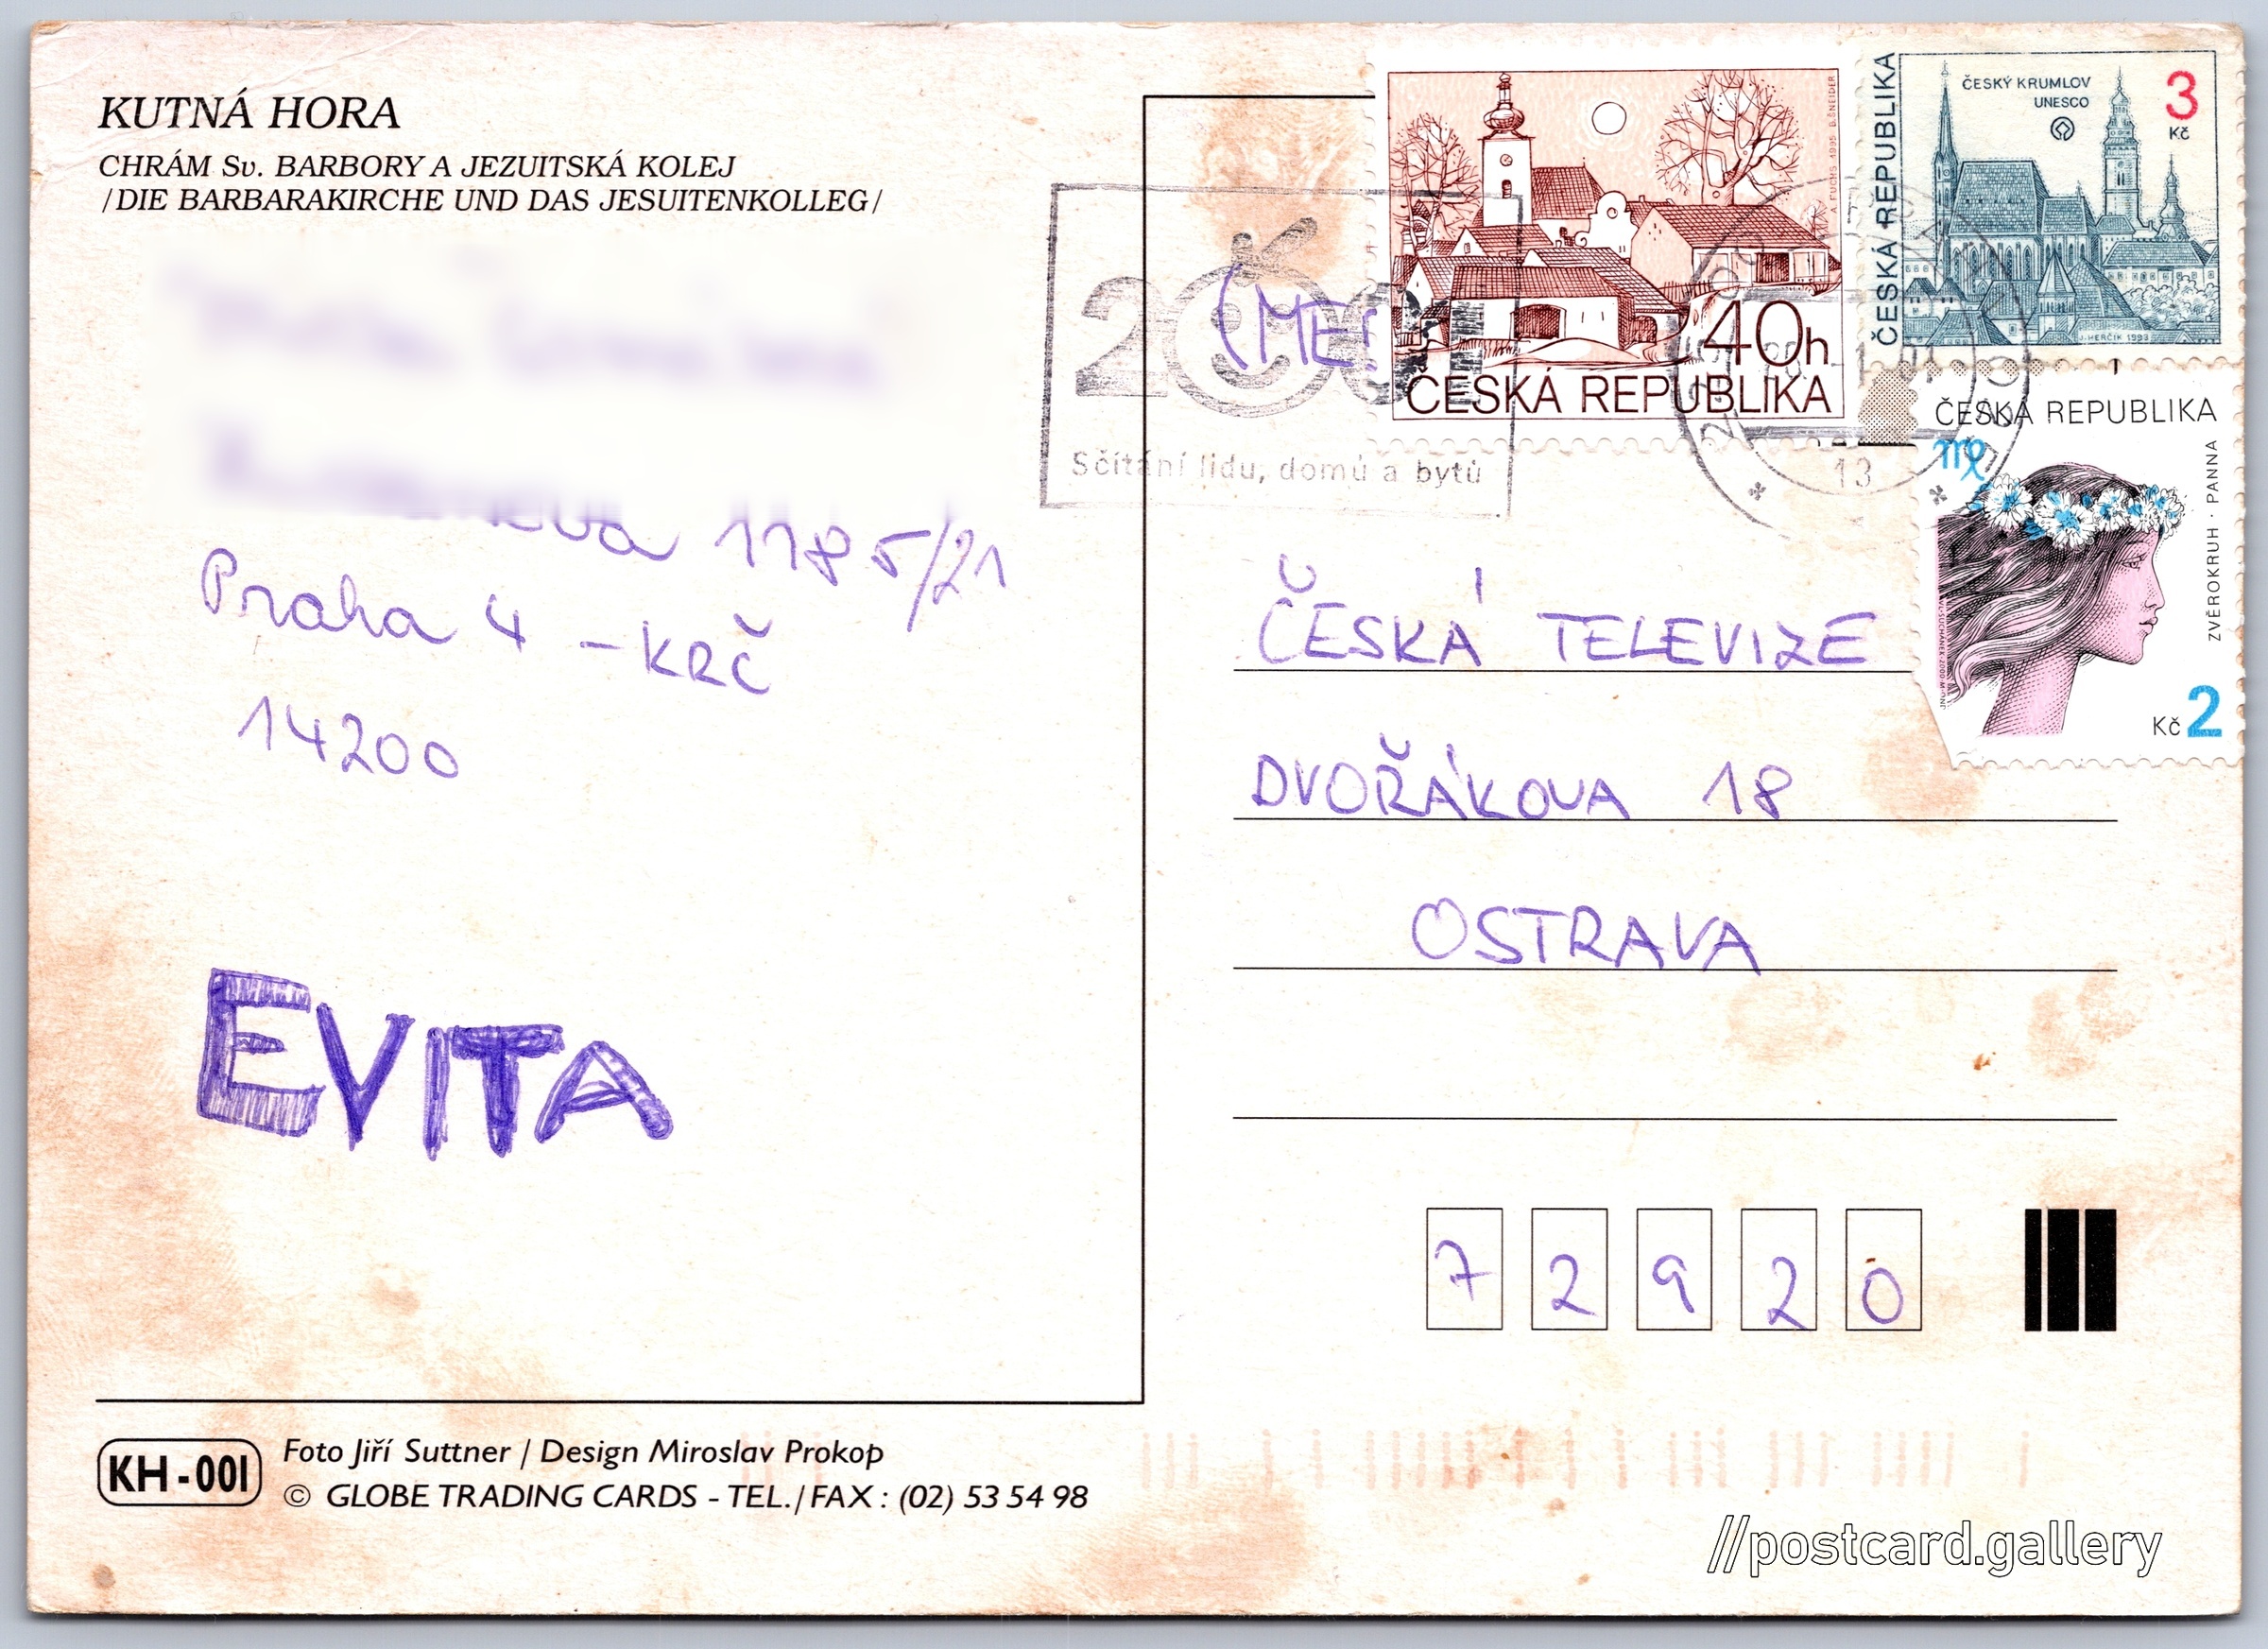 KUTNÁ HORA
CHRÁM Sv. BARBORY A JEZUITSKÁ KOLEJ
/DIE BARBARAKIRCHE UND DAS JESUITENKOLLEG/
1185/21
Praha 4 - KRČ
14200
EVITA
KH-001
Foto Jiří Suttner / Design Miroslav Prokop
© GLOBE TRADING CARDS - TEL./FAX: (02) 53 54 98
2001
Sčítání lidu, domů a bytů
40h
ČESKÁ REPUBLIKA
ČESKÁ REPUBLIKA
ČESKÝ KRUMLOV
UNESCO
3
Kč
J. HERČÍK 1993
ČESKÁ REPUBLIKA
ZVĚROKRUH · PANNA
Kč 2
13
ČESKÁ TELEVIZE
DVOŘÁKOVA 18
OSTRAVA
7 2 9 2 0
//postcard.gallery